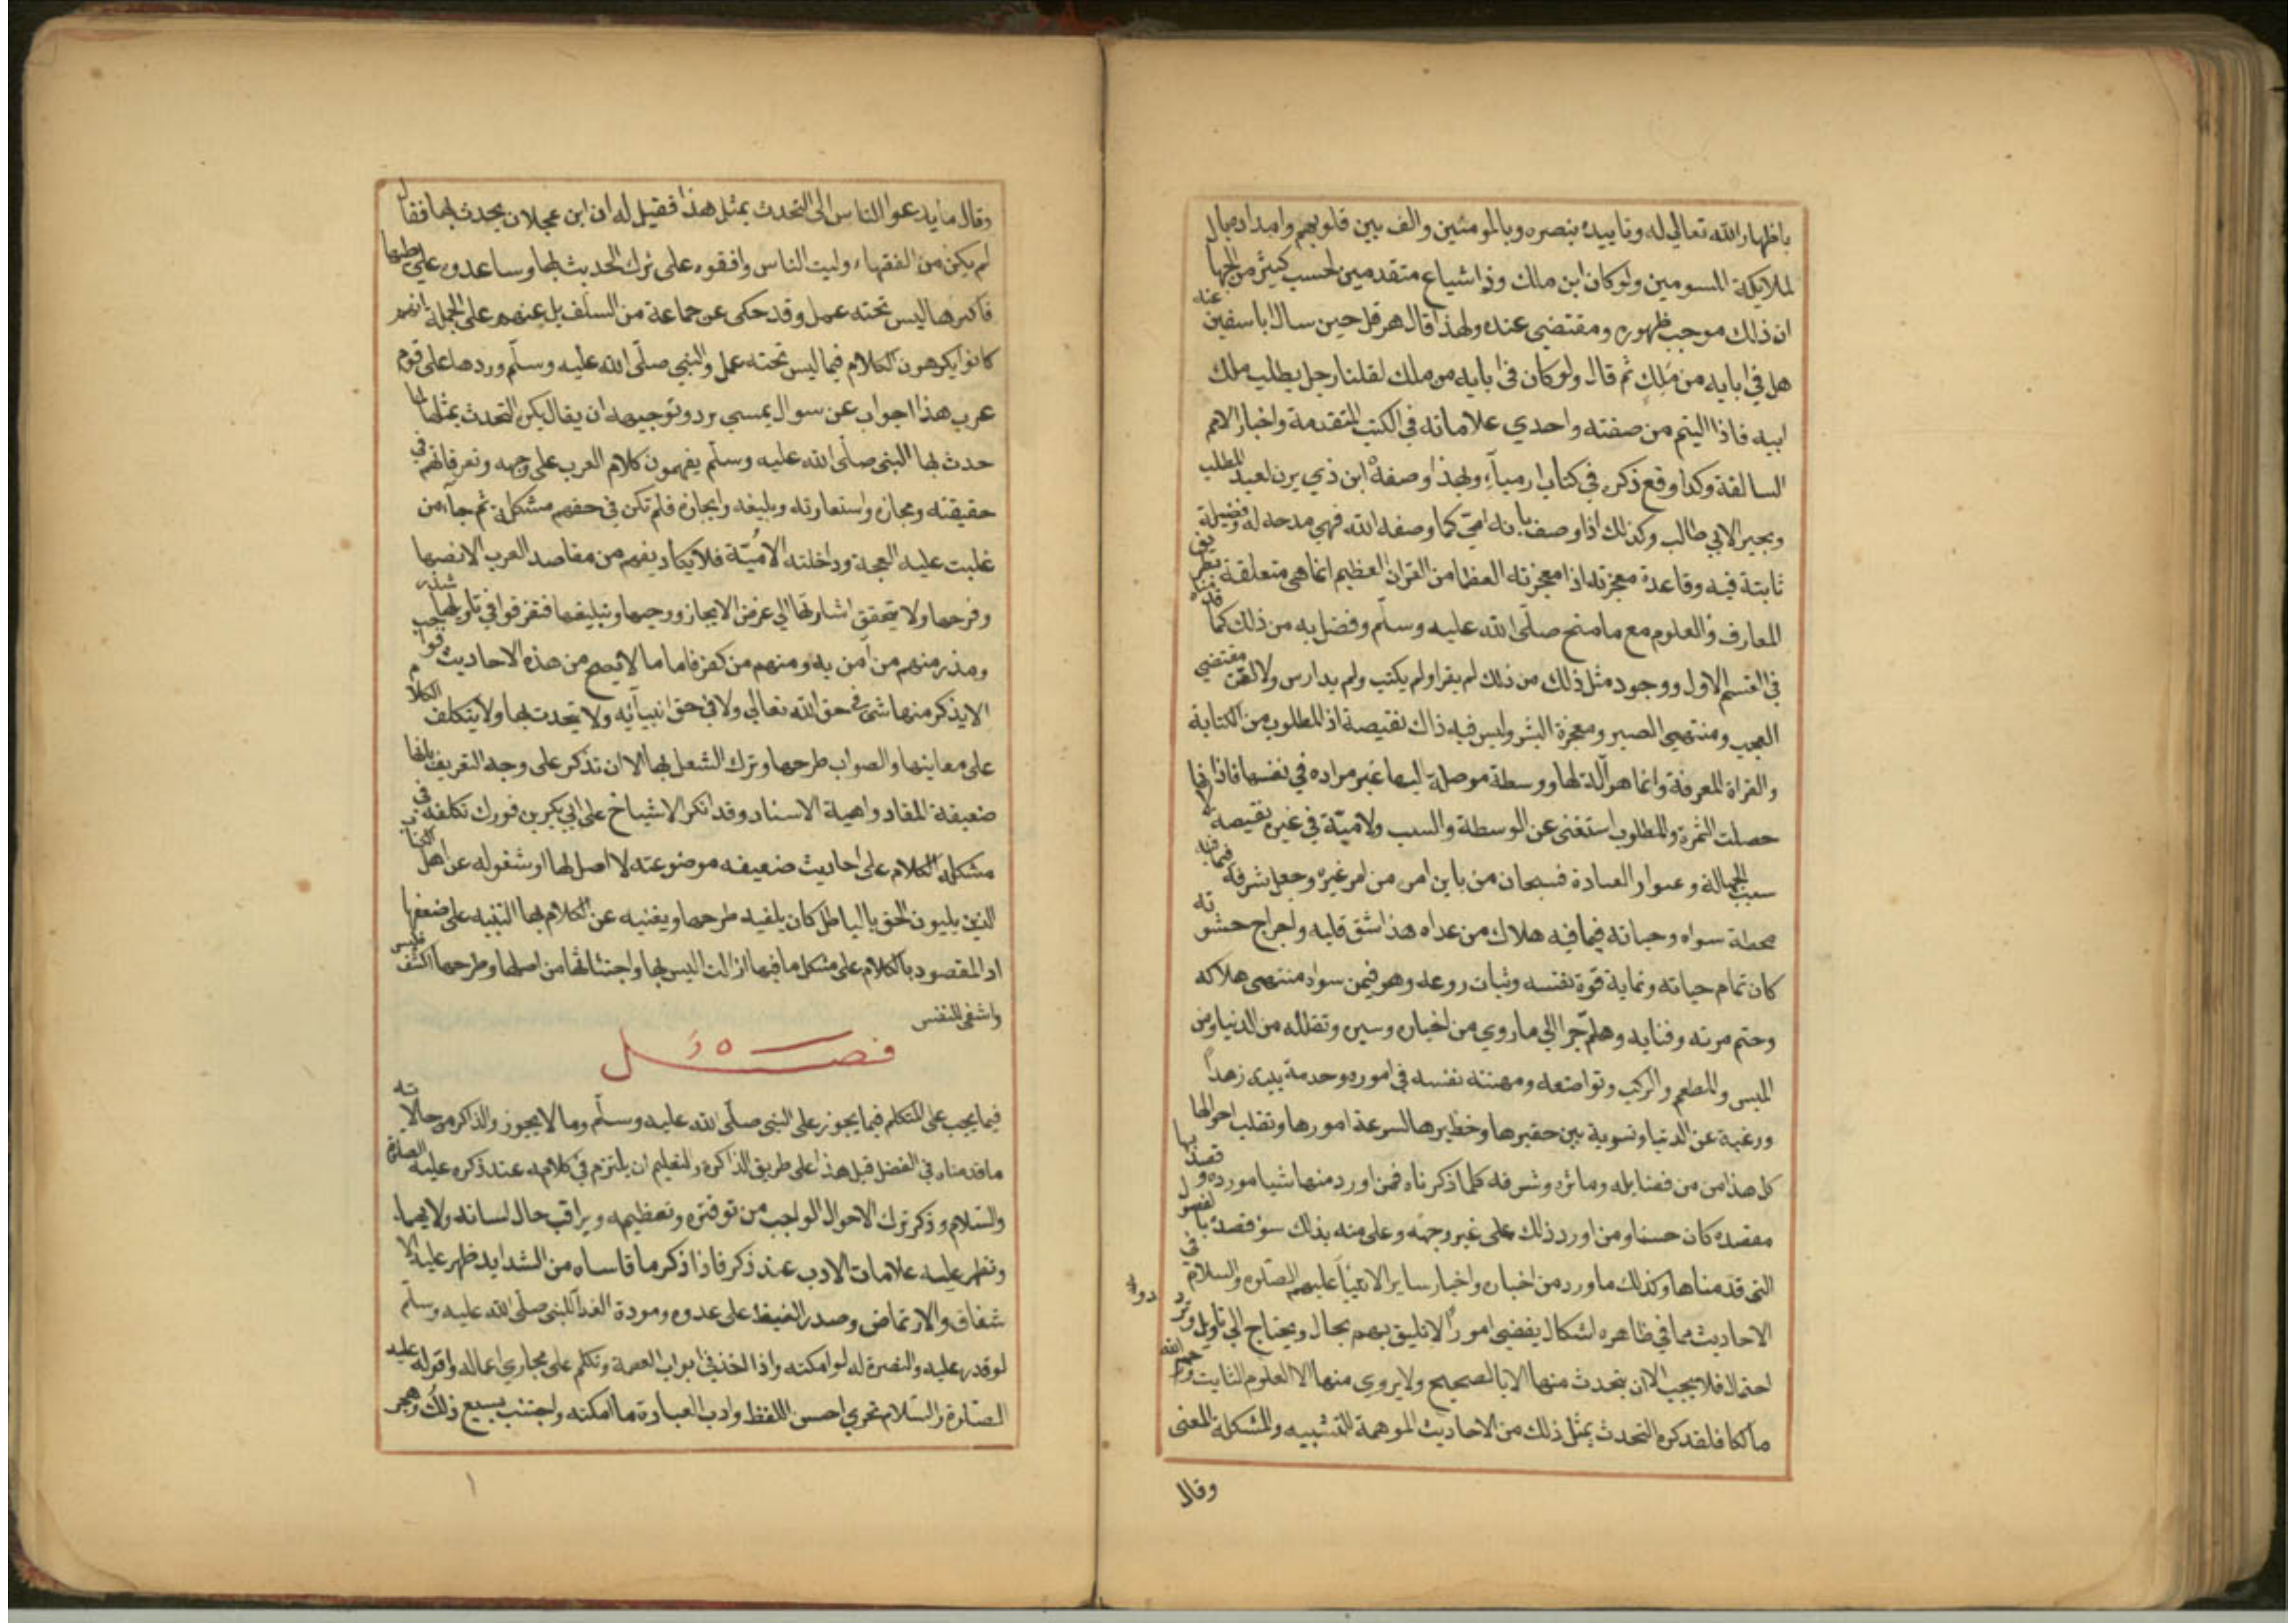 باظهار الله تعالي له وتاييده بنصره وبالمومنين والف بين قلوبهم وامداده بال
لملايكة المسومين ولوكان ابن ملك وذا شياع متقدمين لحسب كثير من الجهال
ان ذلك موجب ظهوره ومقتضي عنده ولهذا قال هرقل حين سال ابا سفين عنه
هل في ابايه من مَلِك ثم قال ولوكان في ابايه من ملك لقلنا رجل يطلب ملك
ابيه فاذا اليتم من صفته واحدي علاماته في الكتب المتقدمة واخبار الامم
السالفة وكدا وقع ذكره في كتاب ارمياء ولهذا وصفه ابن ذي يزن لعبد المطلب
وبحير الابي طالب وكذلك اذا وصف بانه امي كما وصفه الله فهي مدحه له وفضيلة
ثابتة فيه وقاعدة معجزته اذا معجزته العظما من القران العظيم انما هي متعلقة بطريق
المعارف والعلوم مع ما منح صلّى الله عليه وسلّم وفضل به من ذلك كما قدمناه
في القسم الاول ووجود مثل ذلك من ذلك لم يقرا ولم يكتب ولم يدارس ولا لقن مقتضي
العجب ومنتهي الصبر ومعجزة البشر وليس فيه ذاك نقيصة اذ المطلوب من الكتابة
والقراة المعرفة وانما هو آلة لها ووسطة موصلة ليها غير مراده في نفسها فاذا
حصلت الثمرة والمطلوب استغنى عن الوسطة والسبب ولاميّة في غيره نقيصه لانها
سبب الجهالة وعنوار العبادة فسبحان من باين امر من امر غيره وجعل شرفه فيما فيه
محطة سواه وحياته فيما فيه هلاك من عداه هذا شق قلبه واخراج حشوته
كان تمام حياته ونماية قوة نفسه وثبات روعه وهو فيمن سواه منتهى هلاكه
وحتم موته وفنايه وهلمّ جرا الي ما روي من اخباره وسيره وتقلله من الدنيا ومن
الملبس والمطعم والركب وتواضعه ومهنته نفسه في اموره وخدمة بيده زهداً
ورغبة عن الدنيا وتسوية بين حقيرها وخطيرها لسرعة امورها وتقلب احوالها
كل هذا من من فضايله وماثره وشرفه كلما ذكرناه فمن اورد منها شيا مورده وقصد بها
مقصده كان حسنا ومن اورد ذلك على غير وجهه وعلى منه بذلك سؤ قصده بالفصول
التي قدمناها وكذلك ما ورد من اخباره واخبار ساير الانبيا عليهم الصلوة والسلام في
الاحاديث مما في ظاهره اشكال يقضي امورًا لاتليق بهم بحال ويحتاج الي تاويل وتردد
احتمال فلا يجب الان يتحدث منها الا بالصحيح ولا يروي منها الا العلوم الثابت ورحم الله
مالكا فلقد كره التحدث بمثل ذلك من الاحاديث الموهمة للتشبيه والمشكلة المعنى
وقال
وقال ما يدعوا الناس الى التحدث بمثل هذا فقيل له ان ابن عجلان يحدث بها فقال
لم يكن من الفقهاء وليت الناس وافقوه على ترك الحديث بها وساعدوه علي طيها
فاكثرها ليس تحته عمل وقد حكى عن جماعة من السلف بل عنهم على الجملة انهم
كانوا يكرهون الكلام فيما ليس تحته عمل والنبي صلّى الله عليه وسلّم وردها على قوم
عرب هذا جواب عن سوال يمسي برد وتوجيهه ان يقال يكن التحدث بمثلها لما
حدث بها النبى صلّى الله عليه وسلّم يفهمون كلام العرب على وجهه وتعرفاتهم في
حقيقته ومجازه واستعارته وبليغه وايجازه فلم تكن في حقهم مشكلة ثم جاء من
غلبت عليه العجمة وداخلته الاميّة فلا يكاد يفهم من مقاصد العرب الا نصها
وفرحها ولا يتحقق اشارتها الي غرض الايجاز ورحيها وتبليغها فتفرقوا في تاويلها شذر
ومذر منهم من آمن به ومنهم من كفر فاما ما لا يصح من هذه الاحاديث فواجب
الا يذكر منها شى في حق الله تعالي ولا في حق انبيآئه ولا يتحدث بها ولا يتكلف الكلام
على معاينها والصواب طرحها وترك الشعل بها الا ان تذكر على وجه التعريف بانها
ضعيفة المقاد واهية الاسناد وقد انكر الاشياخ على ابي بكر بن فورك تكلفه في
مشكله الكلام على احاديث ضعيفه موضوعته لا اصل لها او شقوله عن اهل الكتاب
الذين يلبون الحق بالباطل كان يلفيه طرحها ويغنيه عن الكلام بها التنبيه على ضعفها
اد المقصود بالكلام على مشكل ما فيها ازالت اليس بها واجتثاثها من اصلها وطرحها اكشف فليس
واشفى للنفس
فصل
فيما يجب على المتكلم فيما يجوز على النبى صلّى الله عليه وسلّم وما لا يجوز والذاكر من حالاته
ما قدمناه في الفصل قبل هذا على طريق الذاكرة والتعليم ان يلتزم في كلامه عند ذكره عليه الصلوة
والسّلام وذكر ترك الاحوال الواجب من توقيره وتعظيمه ويراقب حال لسانه ولا يهمله
وتظهر عليه علامات الادب عند ذكر فاذا ذكر ما قاساه من الشدايد ظهر عليه الا
شفاق والارتماض وصدر الغيظ على عدوه ومودة الفدآ للنبى صلّى الله عليه وسلّم
لو قدر عليه والنصرة له لو امكنته واذا اخذ في ابواب العصمة وتكلم على مجاري اعماله واقواله عليه
الصّلوة والسّلام تحري احسن اللفظ وادب العبارة ما امكنه واجتنب بسيع ذلك وهجر